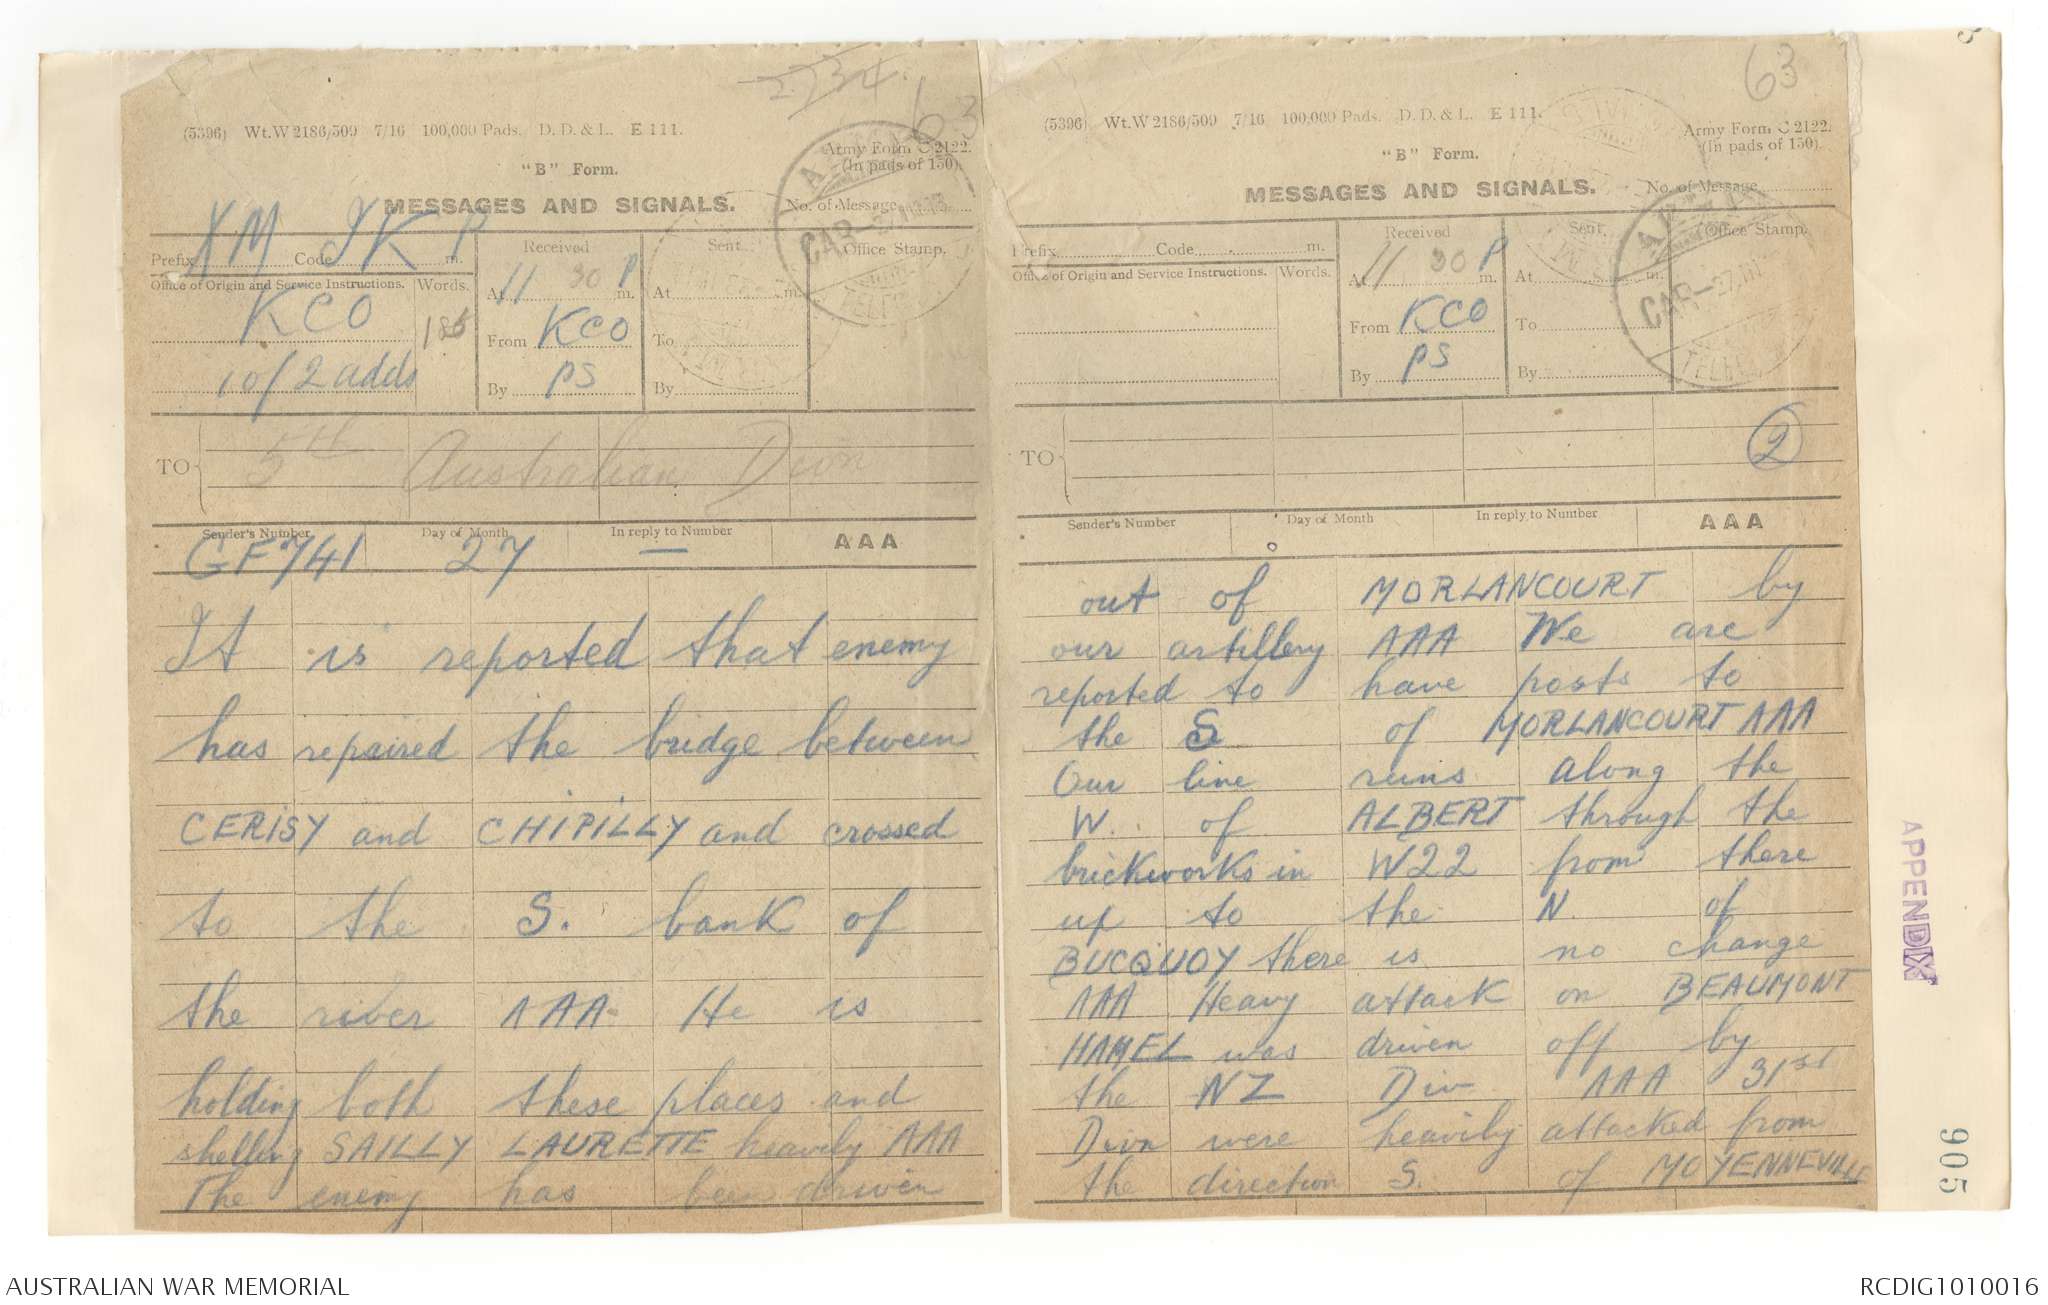 63
(5396) Wt.W2186/509 7/16 100,000 Pads. D. D. & L. E 111.
"B" Form.
Army Form C 2122.
(In pads of 150).
MESSAGES AND SIGNALS.
No. of Message
Prefix XM Code JK P m.
Received
Sent
Office Stamp.
Office of Origin and Service Instructions.
Words.
KCO
10/2 adds
At 11 30 P m.
From KCO
By PS
At m.
To
By
TO 5th Australian Divn
Sender's Number
Day of Month
In reply to Number
AAA
GF741 27 —
It is reported that enemy
has repaired the bridge between
CERISY and CHIPILLY and crossed
to the S. bank of
the river AAA He is
holding both these places and
shelling SAILLY LAURETTE heavily AAA
The enemy has been driven
63
(5396) Wt.W2186/509 7/16 100,000 Pads. D. D. & L. E 111.
"B" Form.
Army Form C 2122.
(In pads of 150).
MESSAGES AND SIGNALS.
No. of Message
Prefix Code m.
Received
Sent
Office Stamp.
Office of Origin and Service Instructions.
Words.
At 11 30 P m.
From KCO
By PS
At m.
To
By
TO
2
Sender's Number
Day of Month
In reply to Number
AAA
out of MORLANCOURT by
our artillery AAA We are
reported to have posts to
the S of MORLANCOURT AAA
Our line runs along the
W. of ALBERT through the
brickworks in W22 from there
up to the N. of
BUCQUOY there is no change
AAA Heavy attack on BEAUMONT
HAMEL was driven off by
the NZ Div AAA 31st
Divn were heavily attacked from
the direction S. of MOYENNEVILLE
APPENDIX
905
AUSTRALIAN WAR MEMORIAL
RCDIG1010016